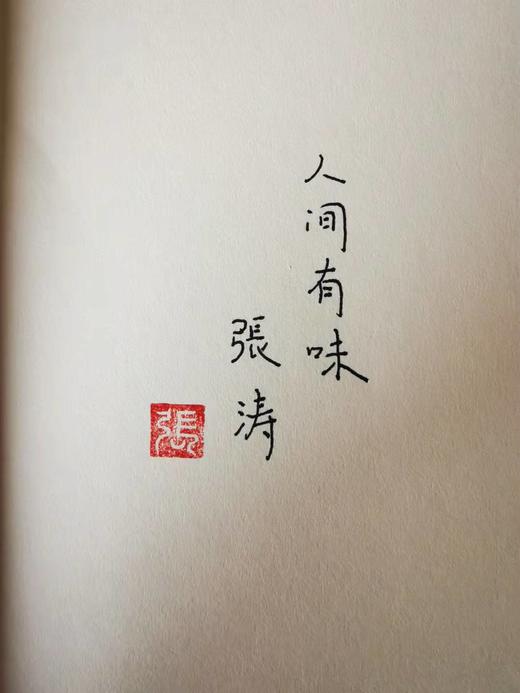 人间有味
張涛
張